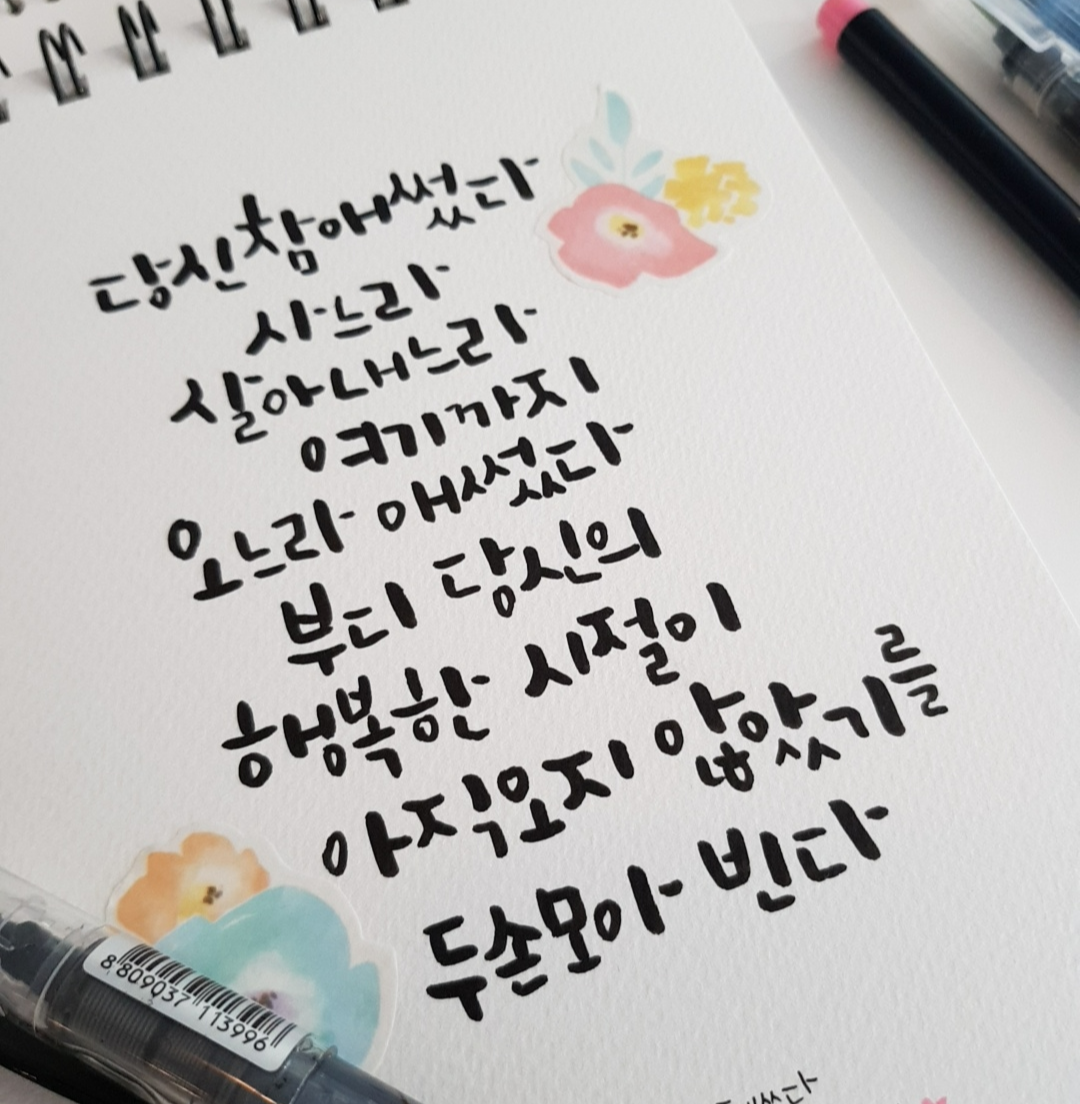 당신 참 애썼다
사느라
살아내느라
여기까지
오느라 애썼다
부디 당신의
행복한 시절이
아직 오지 않았기를
두 손 모아 빈다
8 809037 113996
썼다